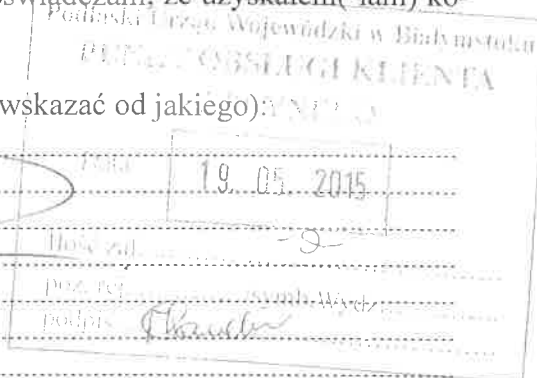 oświadczam, że uzyskałem(-łam) ko-
Podlaski Urząd Wojewódzki w Białymstoku
PUNKT OBSŁUGI KLIENTA
wskazać od jakiego):
Data
19. 05. 2015
Ilość zał.
-2-
poz. rej. symb. Wydz.
podpis